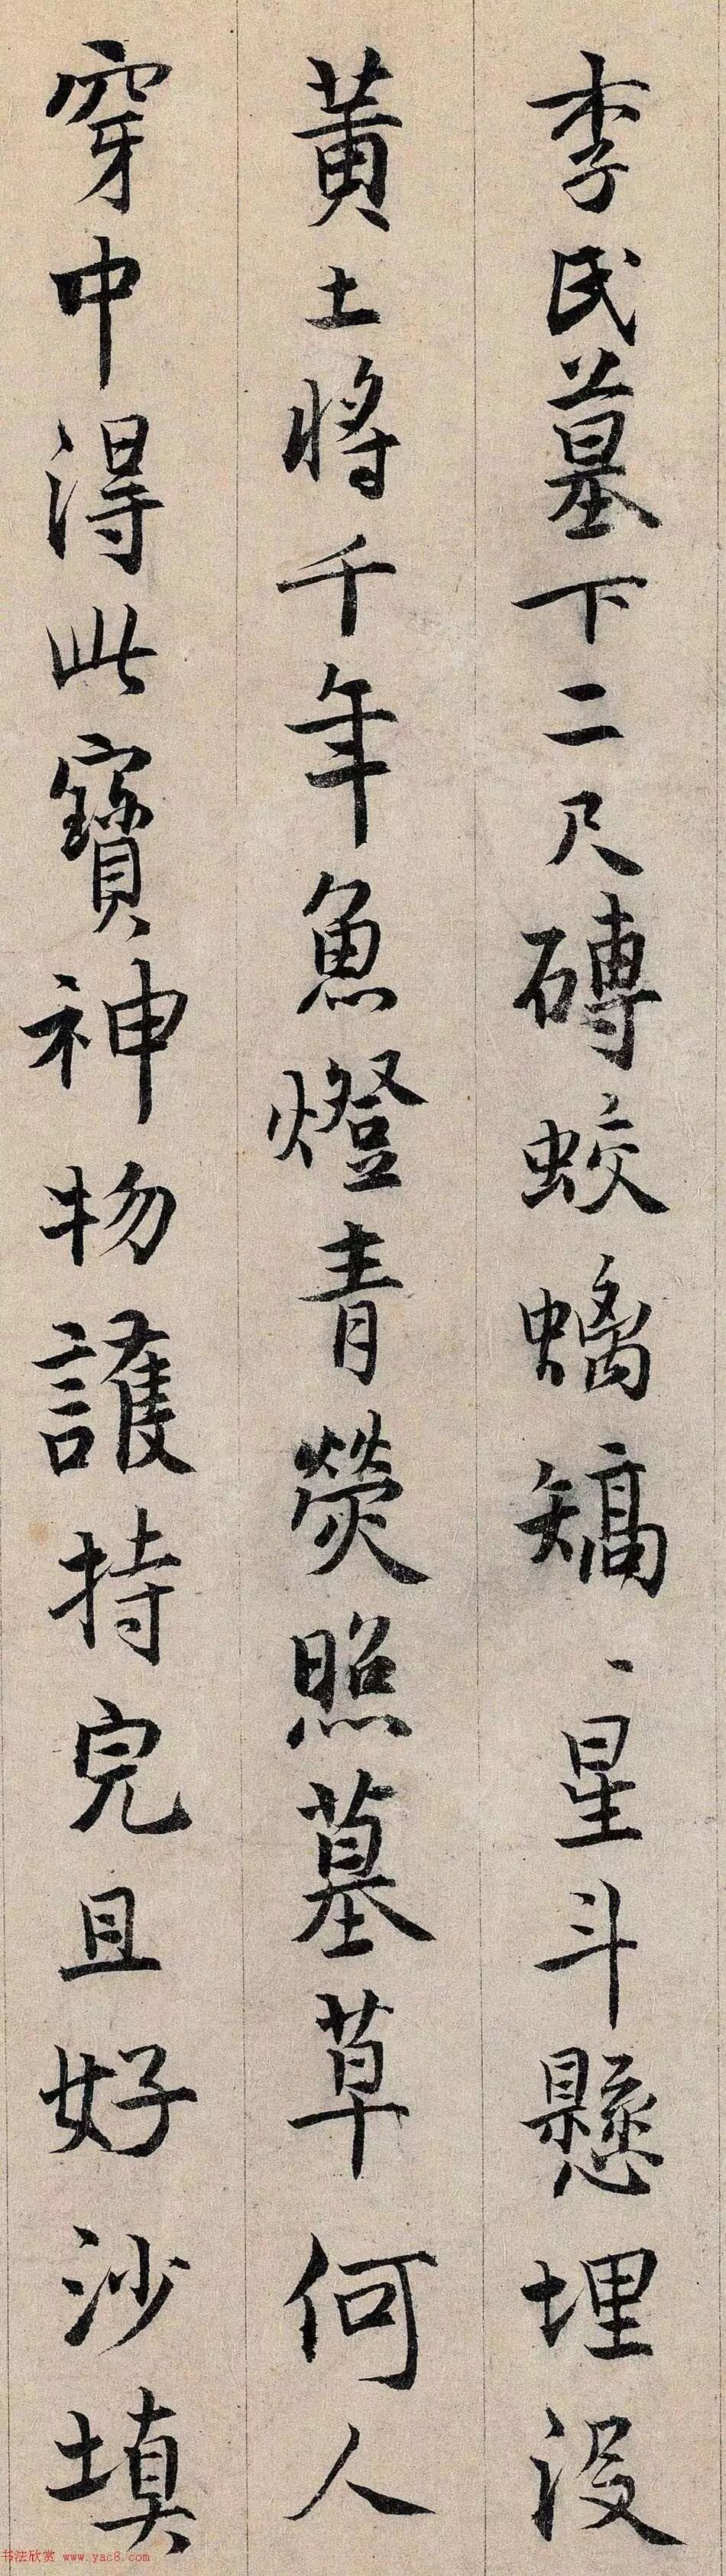 李氏墓下二尺磚蛟螭矯、星斗懸埋没
黄土將千年魚燈青熒照墓草何人
穿中得此寳神物護持完且好沙填
书法欣赏 www.yac8.com